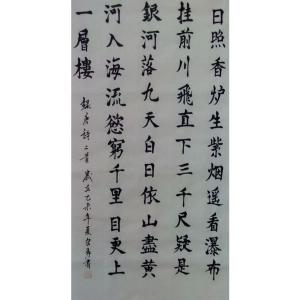 日照香炉生紫烟遥看瀑布
挂前川飛直下三千尺疑是
銀河落九天白日依山盡黄
河入海流慾窮千里目更上
一層樓
録唐詩二首歲在乙未年夏